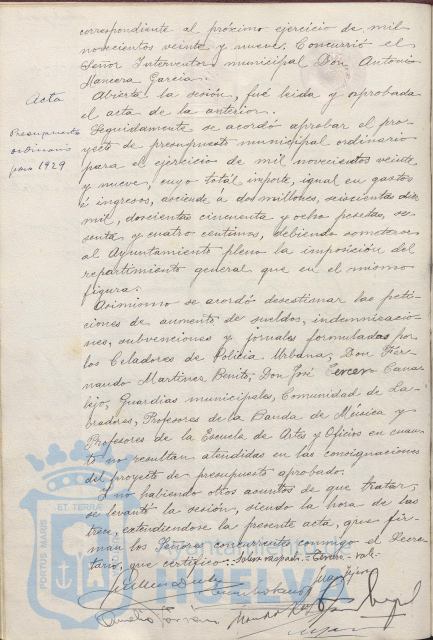 correspondiente al próximo ejercicio de mil
novecientos veinte y nueve. Concurrió el
Señor Interventor municipal Don Antonio
Mancera Garcia.
Acta
Abierta la sesión, fué leida y aprobada
el acta de la anterior.
Presupuesto
ordinario
para 1929
Seguidamente se acordó aprobar el pro-
yecto de presupuesto municipal ordinario
para el ejercicio de mil novecientos veinte
y nueve, cuyo total importe, igual en gastos
é ingresos, asciende á dos millones, seiscientas diez
mil, doscientas cincuenta y ocho pesetas, se-
senta y cuatro centimos, debiendo someterse
al Ayuntamiento pleno la imposición del
repartimiento general que en el mismo
figura.
Asimismo se acordó desestimar las peti-
ciones de aumento de sueldos, indemnizacio-
nes, subvenciones y jornales formuladas por
los Celadores de Policia Urbana, Don Fer-
nando Martinez Benito, Don José Cercero Cana-
lejo, Guardias municipales, Comunidad de La-
bradores, Profesores de la Banda de Música y
Profesores de la Escuela de Artes y Oficios en cuan-
to no resultan atendidas en las consignaciones
del proyecto de presupuesto aprobado.
Y no habiendo otros asuntos de que tratar,
se levantó la sesión, siendo la hora de las
trece, extendiendose la presente acta, que fir-
man los Señores concurrentes conmigo el Secre-
tario, que certifico.= Sobre raspado = Cercero = vale=
PORTUS MARIS
ET TERRÆ
Ayuntamiento de
HUELVA